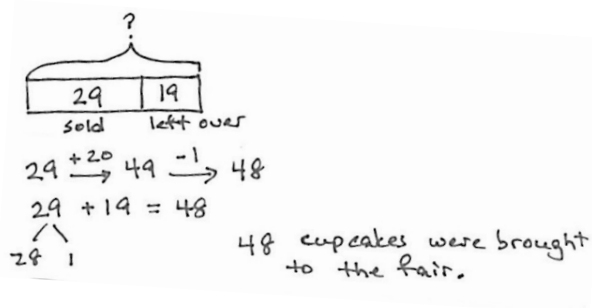 ?
29 19
sold left over
29 +20→ 49 -1→ 48
29 + 19 = 48
28 1
48 cupcakes were brought
to the fair.